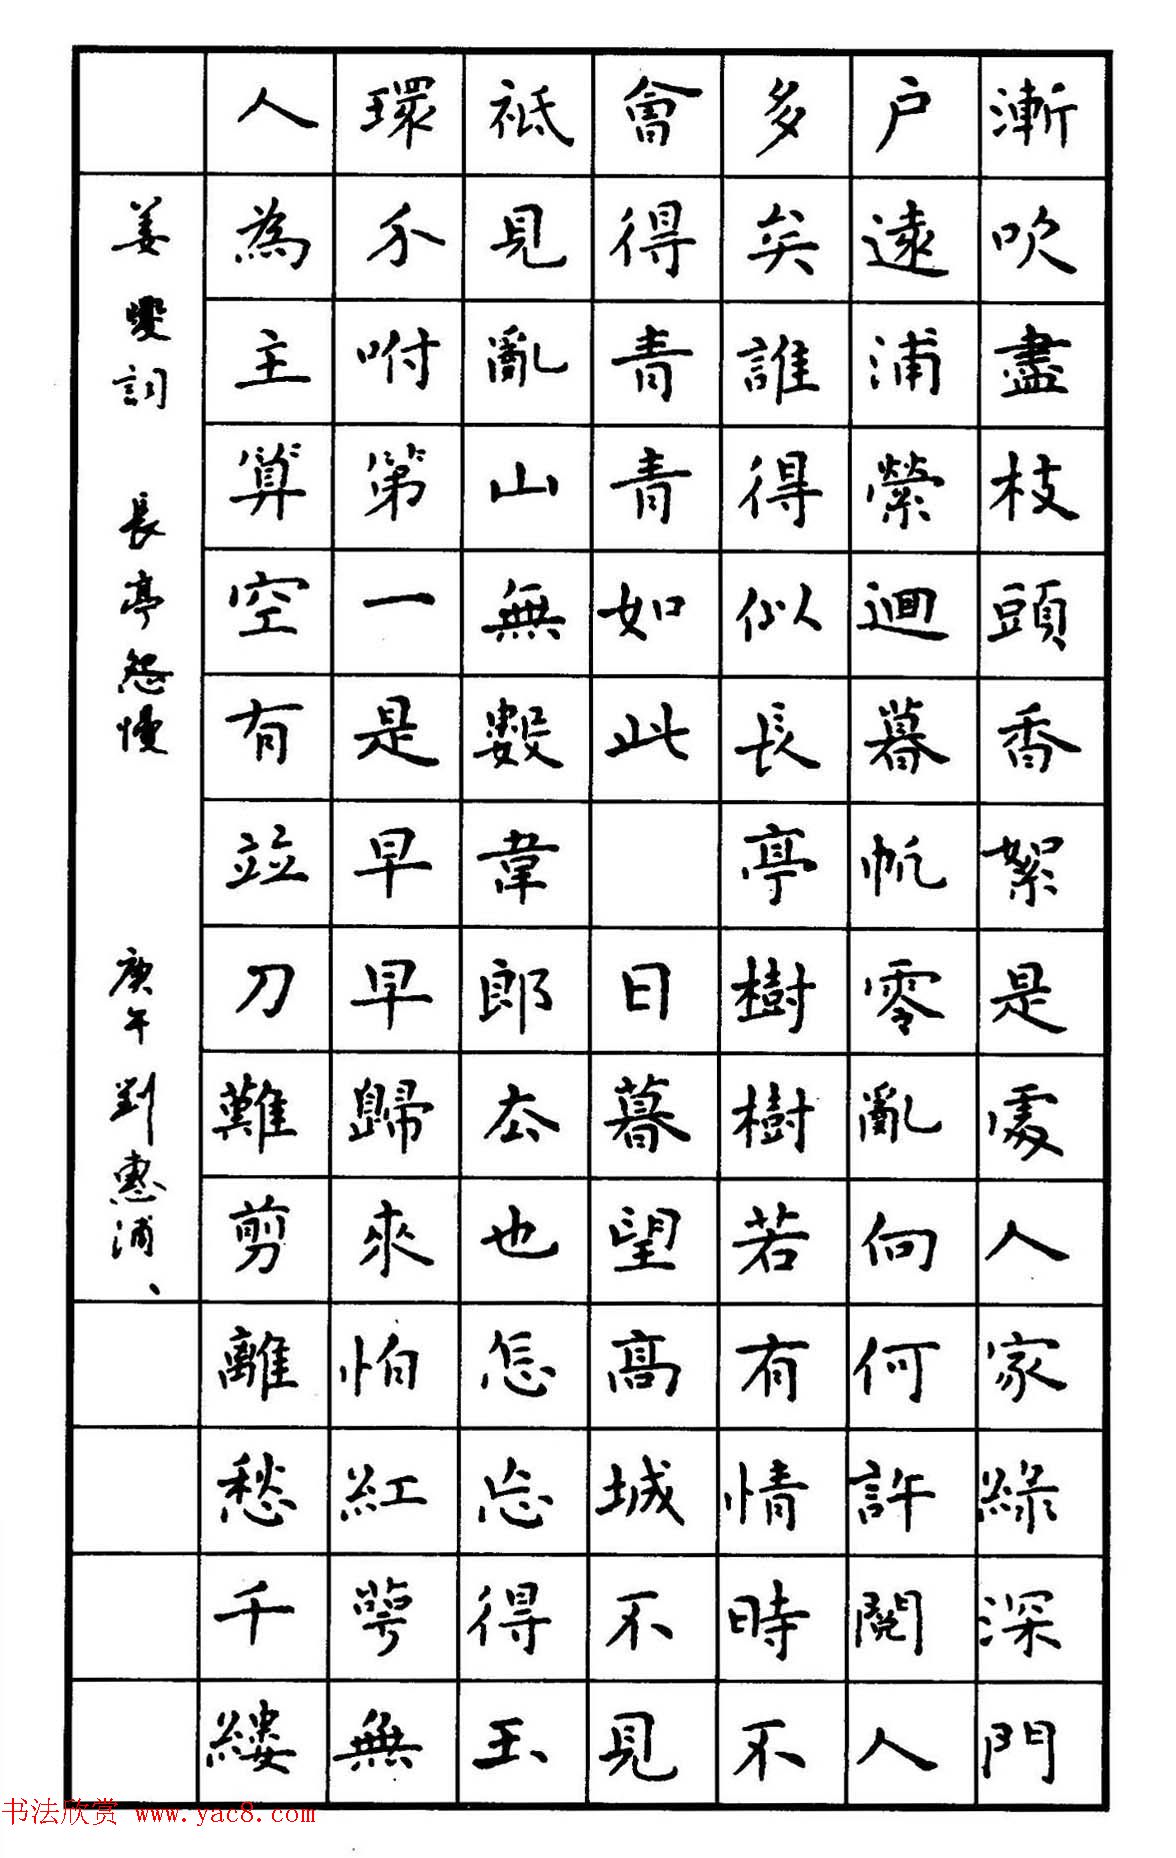 漸吹盡枝頭香絮是處人家綠深門
户遠浦縈迴暮帆零亂向何許閱人
多矣誰得似長亭樹樹若有情時不
會得青青如此 日暮望高城不見
祗見亂山無數韋郎去也怎忘得玉
環分咐第一是早早歸來怕紅萼無
人為主算空有並刀難剪離愁千縷
姜夔詞 長亭怨慢 庚午 劉惠浦、
书法欣赏 www.yac8.com